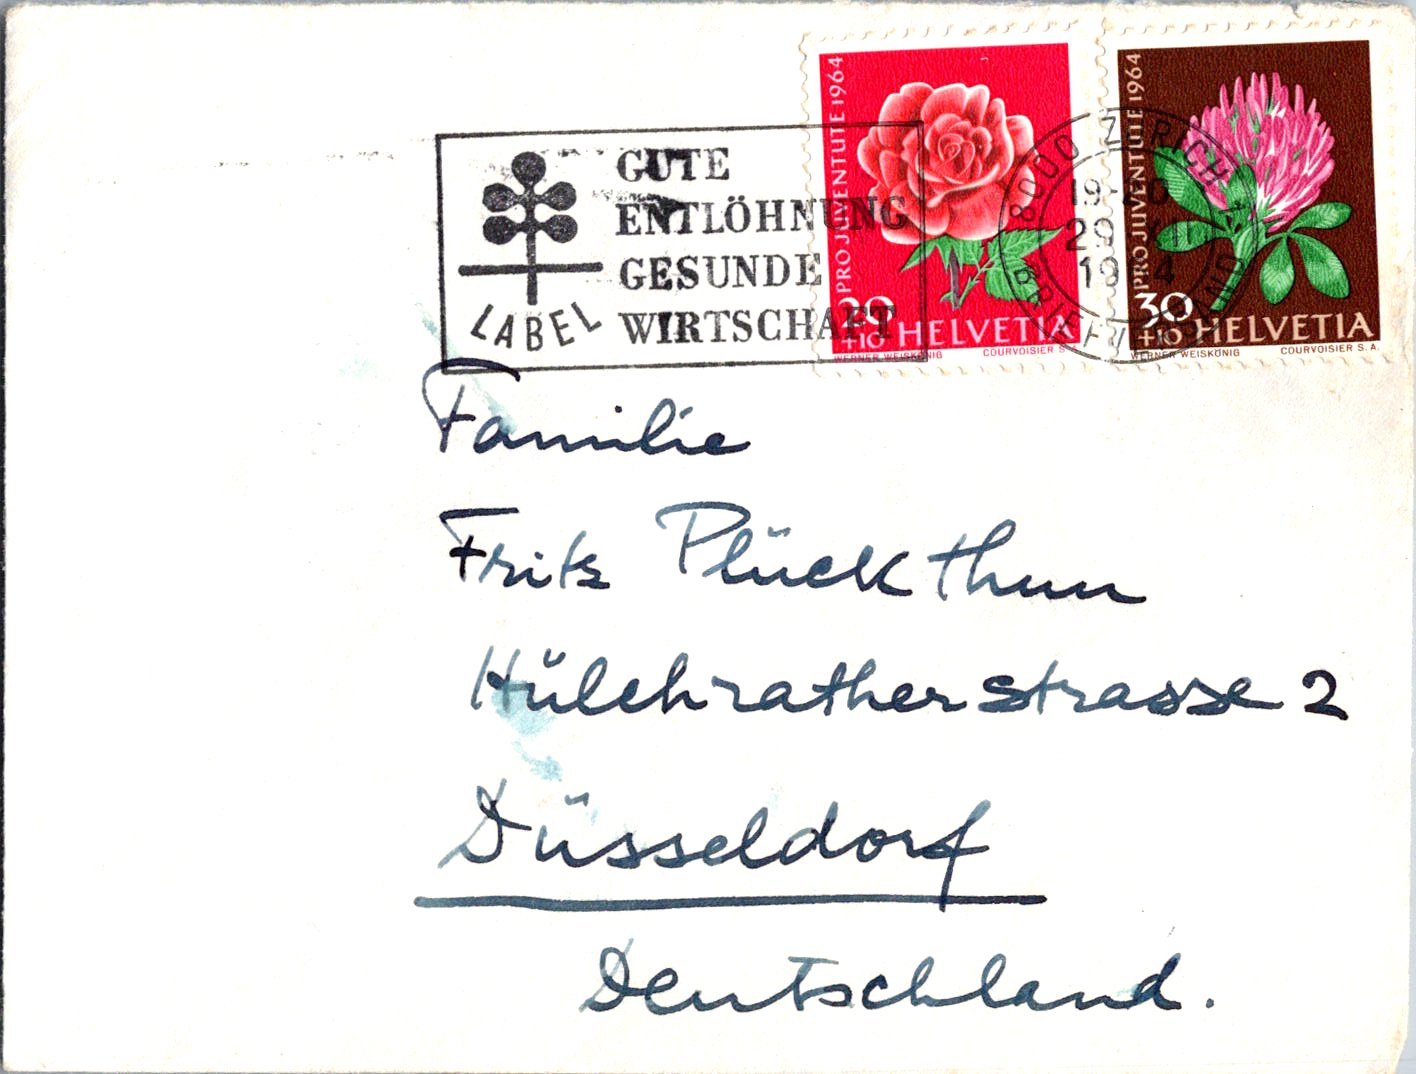 PRO JUVENTUTE 1964
20
+10
HELVETIA
WERNER WEISKÖNIG COURVOISIER S.A.
PRO JUVENTUTE 1964
30
+10
HELVETIA
WERNER WEISKÖNIG COURVOISIER S.A.
GUTE
ENTLÖHNUNG
GESUNDE
WIRTSCHAFT
LABEL
8000 ZÜRICH
29.XII
1964
BRIEFVERSAND
Familie
Fritz Plückthun
Hülchratherstrasse 2
Düsseldorf
Deutschland.